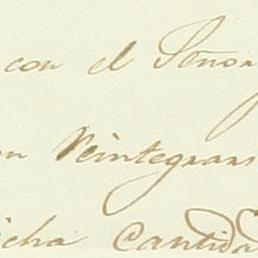 con el Señor
Reintegrars
icha Cantida